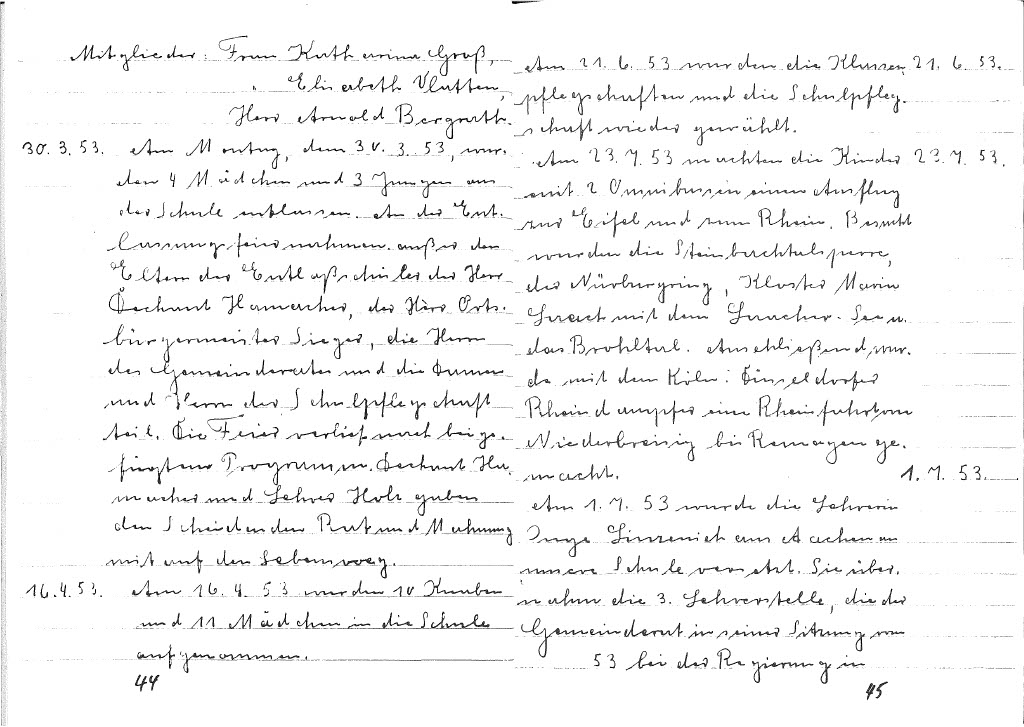 Mitglieder: Frau Katharina Groß,
" Elisabeth Vlatten,
Herr Arnold Bergrath.
30.3.53. Am Montag, dem 30.3.53, wur-
den 4 Mädchen und 3 Jungen aus
der Schule entlassen. An der Ent-
lassungsfeier nahmen außer den
Eltern der Entlaßschüler der Herr
Dechant Hamacher, der Herr Orts-
bürgermeister Sieger, die Herrn
des Gemeinderates und die Damen
und Herrn der Schulpflegschaft
teil. Die Feier verlief nach beige-
fügtem Programm. Dechant Ha-
macher und Lehrer Holz gaben
den Scheidenden Rat und Mahnung
mit auf den Lebensweg.
16.4.53. Am 16.4.53 wurden 10 Knaben
und 11 Mädchen in die Schule
aufgenommen.
44
Am 21.6.53 wurden die Klassen- 21.6.53.
pflegschaften und die Schulpfleg-
schaft wieder gewählt.
Am 23.7.53 machten die Kinder 23.7.53.
mit 2 Omnibussen einen Ausflug
zur Eifel und zum Rhein. Besucht
wurden die Steinbachtalsperre,
der Nürburgring, Kloster Maria
Laach mit dem Laacher-See u.
das Brohltal. Anschließend wur-
de mit dem Köln: Düsseldorfer
Rheindampfer eine Rheinfahrt von
Niederbreisig bis Remagen ge-
macht. 1.7.53.
Am 1.7.53 wurde die Lehrerin
Inge Sinzenich aus Aachen an
unsere Schule versetzt. Sie über-
nahm die 3. Lehrerstelle, die der
Gemeinderat in seiner Sitzung vom
53 bei der Regierung in
45